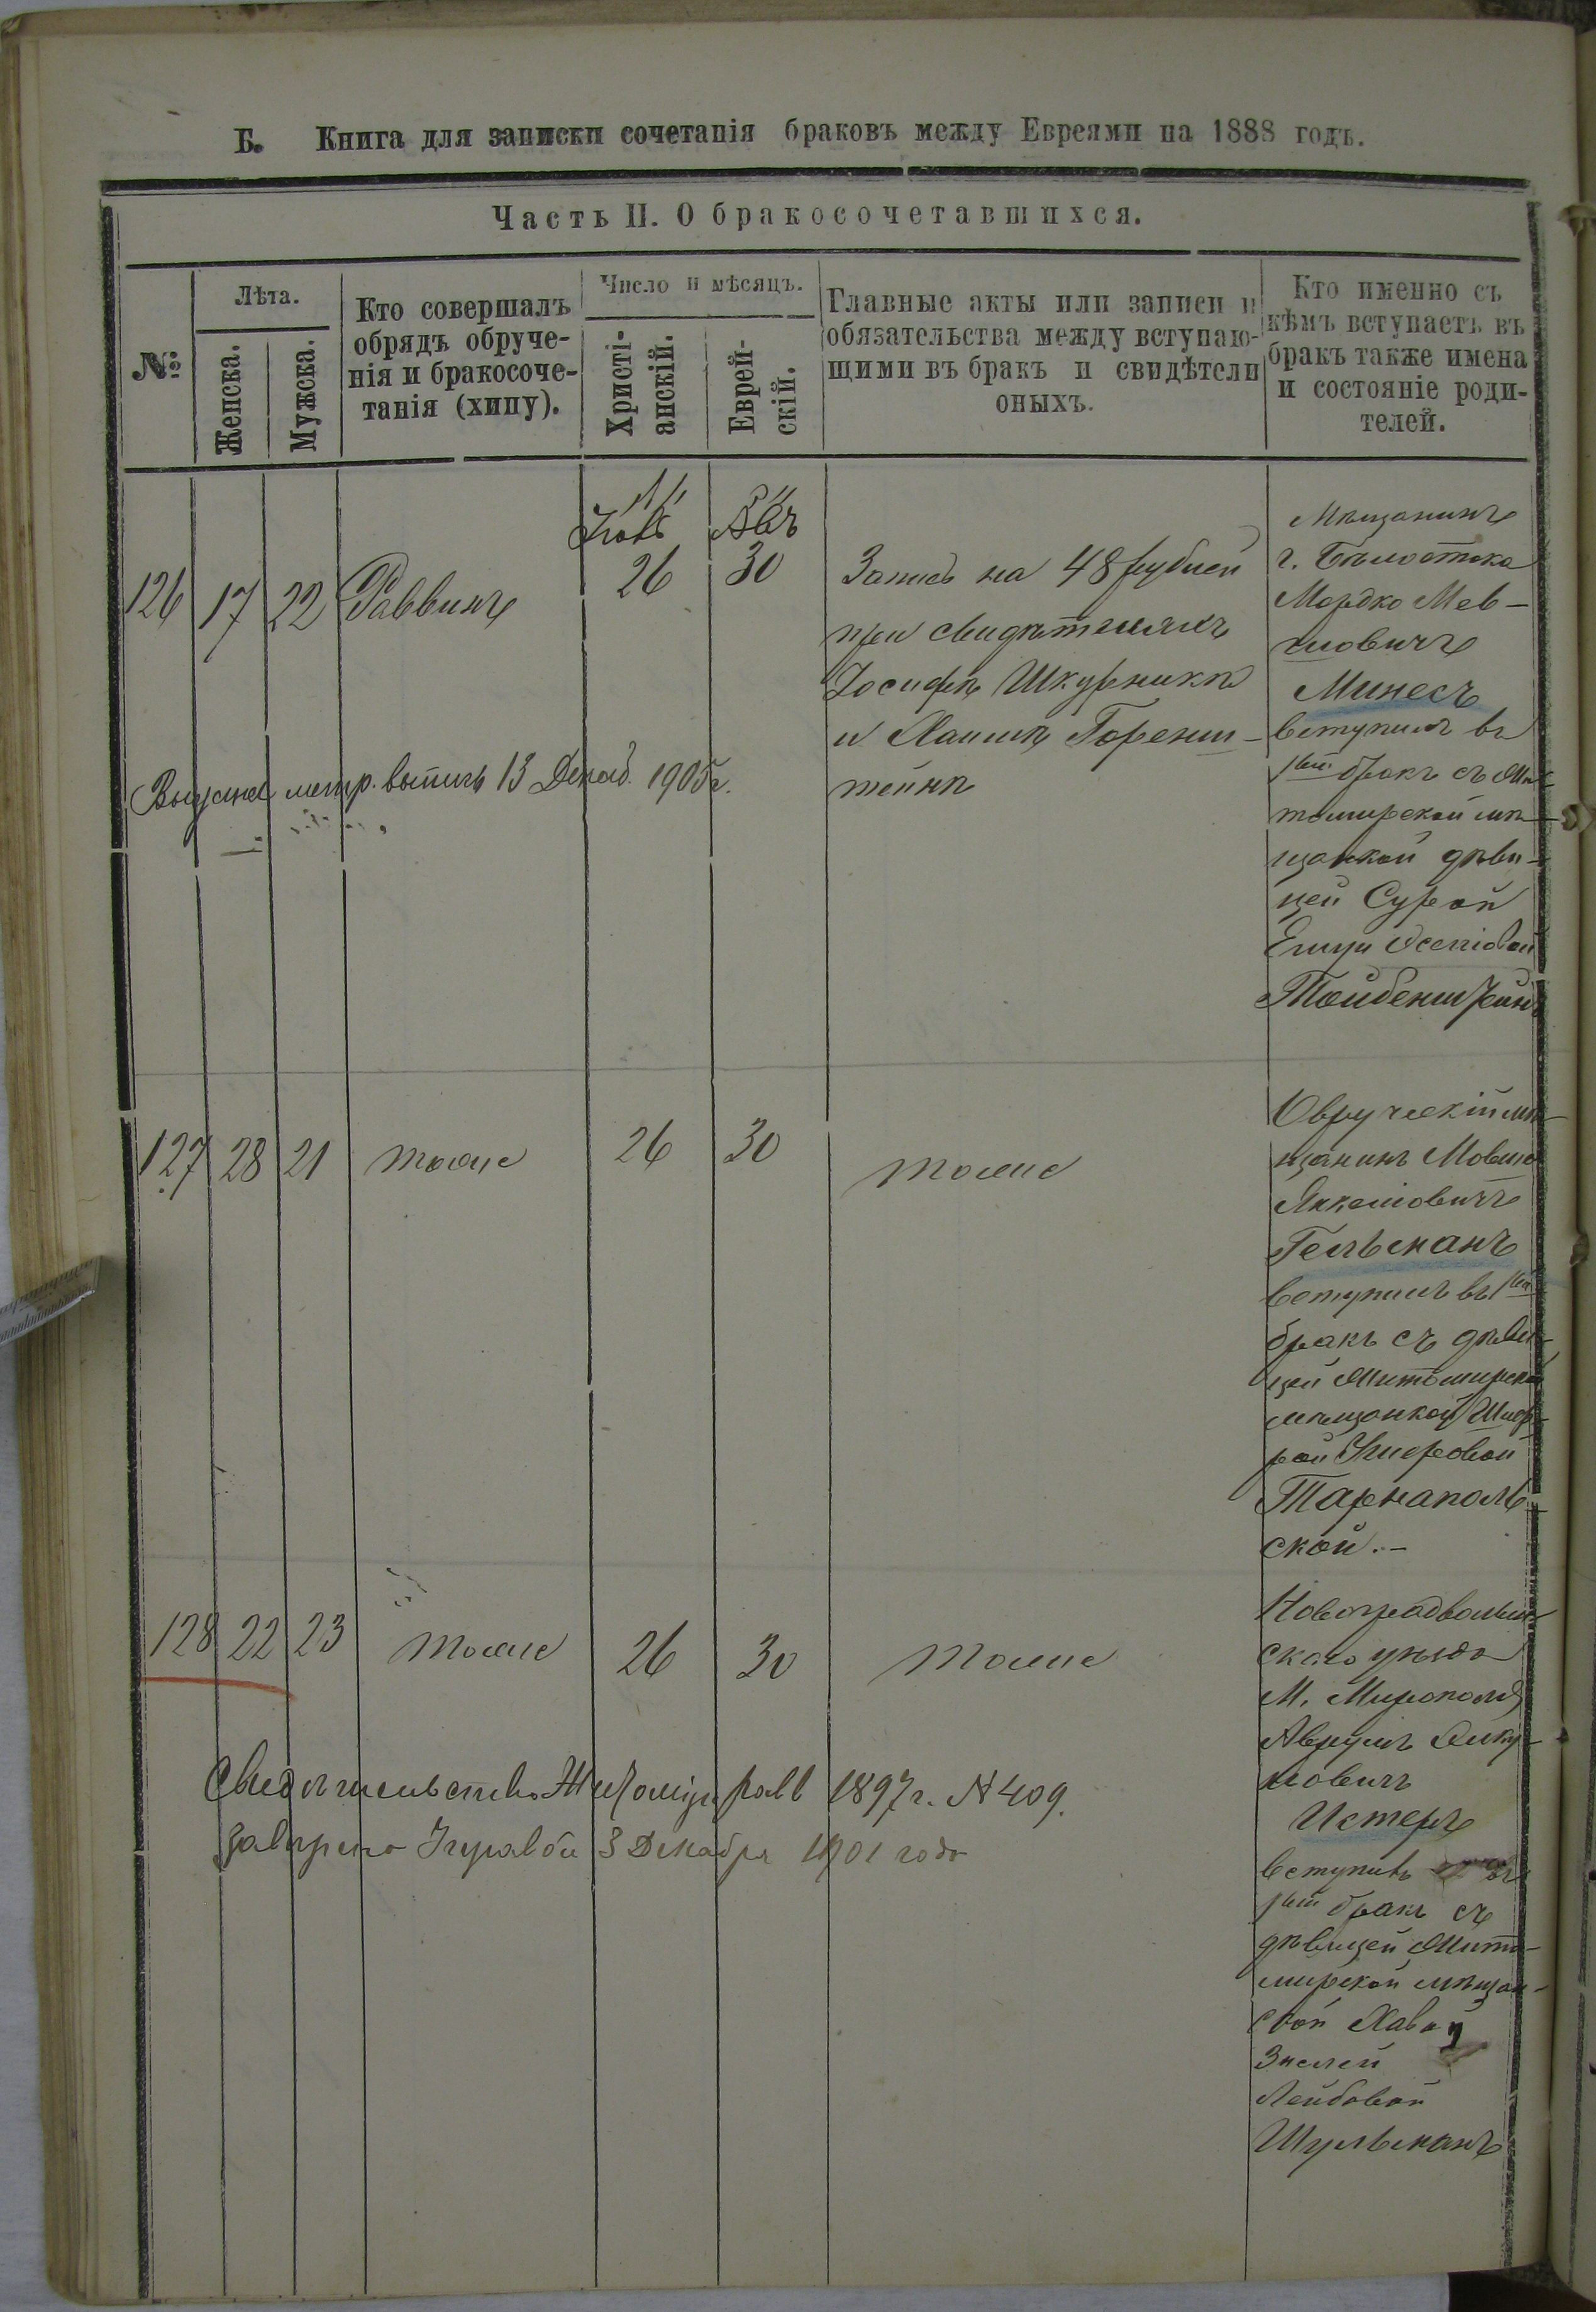 Б. Книга для записки сочетанія браковъ между Евреями на 1888 годъ.
Часть II. О бракосочетавшихся.
№:
Лѣта.
Женска.
Мужска.
Кто совершалъ
обрядъ обруче-
нія и бракосоче-
танія (хипу).
Число и мѣсяцъ.
Христі-
анскій.
Еврей-
скій.
Главные акты или записи и
обязательства между вступаю-
щими въ бракъ и свидѣтели
оныхъ.
Кто именно съ
кѣмъ вступаетъ въ
бракъ также имена
и состояніе роди-
телей.
126 17 22 Раввинъ
26 30
Запись на 48 рублей
при свидѣтеляхъ
Іосифѣ Шкурникѣ
и Хаимѣ Горенш-
тейнѣ
Мѣщанинъ
г. Бѣлостока
Мордко Мев-
шовичъ
Минесъ
вступилъ въ
1ый бракъ съ Жи-
томирской мѣ-
щанкой дѣви-
цей Сурой
Тойбенштейнъ
Выдана метр. выпись 13 Декаб. 1905г.
127 28 21 тоже 26 30 тоже
Овручскій мѣ-
щанинъ Мовша
Янкелиовичъ
Гельманъ
вступилъ въ 1ый
бракъ съ дѣви-
цей Житомирской
мѣщанкой Шиф-
рой
Тарнаполь-
ской.-
128 22 23 тоже 26 30 тоже
Новоградволын-
скаго уѣзда
М. Мирополя
Аврумъ
Истеръ
вступилъ въ
1ый бракъ съ
дѣвицей Жито-
мирской мѣщан-
кой Хавой
Лейбовой
Шульманъ
Свидѣтельство Житомир. равв 1897г. N 409.
3 Декабря 1901 года